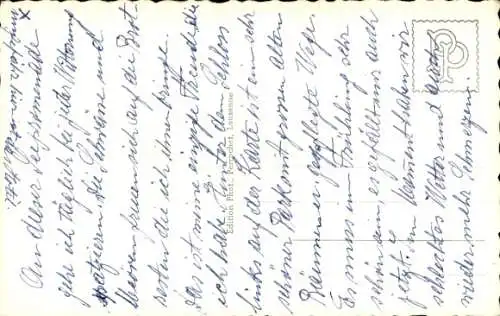 An dieser Seepromenade
gehe ich täglich bei jeder Witterung
spazieren, die Schwäne und
Möwen freuen sich auf die Brot-
resten die ich ihnen bringe.
Das ist meine einzige Freude die
ich habe. Hinter dem Schloss
links auf der Karte ist ein sehr
schöner Park mit grossen alten
Bäumen u. gepflegte Wege.
Es muss im Frühling sehr
schön sein, es gefällt mir auch
jetzt. Im Moment haben wir
schlechtes Wetter und auch
wieder mehr Schmerzen.
Edition Phot. Perrochet, Lausanne